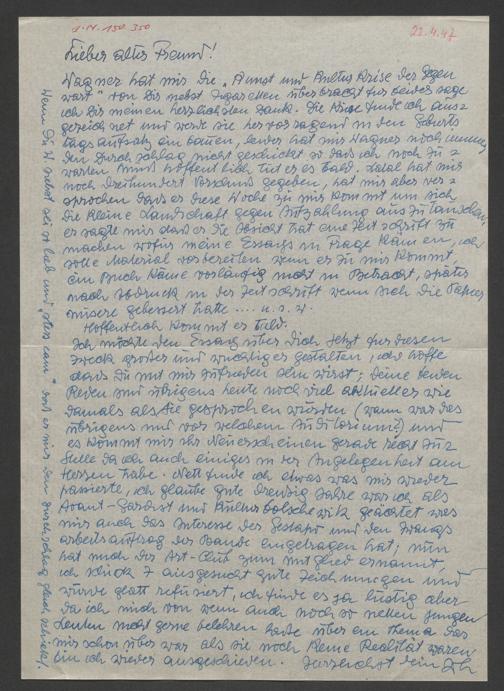 I.N. 150.350
22.4.47
Lieber alter Freund!
Wagner hat mir die „Kunst und Kultur Krise der Gegen
wart" von Dir nebst Zigaretten überbracht für beides sage
ich Dir meinen herzlichsten Dank. Die Krise finde ich ausge
zeichnet und werde sie hervorragend in den Geburts
tagsaufsatz einbauen, leider hat mir Wagner noch immer
den Durchschlag nicht geschickt so dass ich noch zu
warten muss hoffentlich tut er es bald. hat mir
noch dreihundert Vorschuss gegeben, hat mir aber ver
sprochen dass er diese Woche zu mir kommt um sich
die kleine Landschaft gegen Aufzahlung auszutauschen
er sagte mir dass er die Absicht hat eine Zeitschrift zu
machen wofür meine Essays in Frage kämen, ich
solle Material vorbereiten wenn er zu mir kommt,
ein Buch käme vorläufig nicht in Betracht, später
nach Abdruck in der Zeitschrift wenn sich die Papier
misere gebessert hätte .... u.s.w.
Hoffentlich kommt es bald.
Ich möchte den Essay über Dich jetzt für diesen
Zweck größer und wichtiger gestalten, ich hoffe
dass Du mit mir zufrieden sein wirst; Deine beiden
Reden sind übrigens heute noch viel aktueller wie
damals als sie gesprochen wurden (wann war das
übrigens und vor welchem Auditorium?) und
es kommt mir ihr Neuerscheinen gerade recht zu
Stelle da ich auch einiges in der Angelegenheit am
Herzen habe. Nett finde ich etwas was mir wieder
passierte, ich glaube gute dreißig Jahre war ich als
Avant-Gardist und Kulturbolschewik geächtet was
mir auch das Interesse der Gestapo und den Zwangs
arbeitsauftrag der Bande eingetragen hat; nun
hat mich der Art-Club zum Mitglied ernannt,
ich schick 7 ausgesucht gute Zeichnungen und
wurde glatt refusiert, ich finde es ja lustig aber
da ich mich von wenn auch noch so netten jungen
Leuten nicht gerne belehren lasse über ein Thema das
mir schon über war als sie noch keine Realität waren
bin ich wieder ausgeschieden. Herzlichst Dein
Wenn Du W. siehst sei so lieb und dass er mir den Durchschlag gleich schickt!